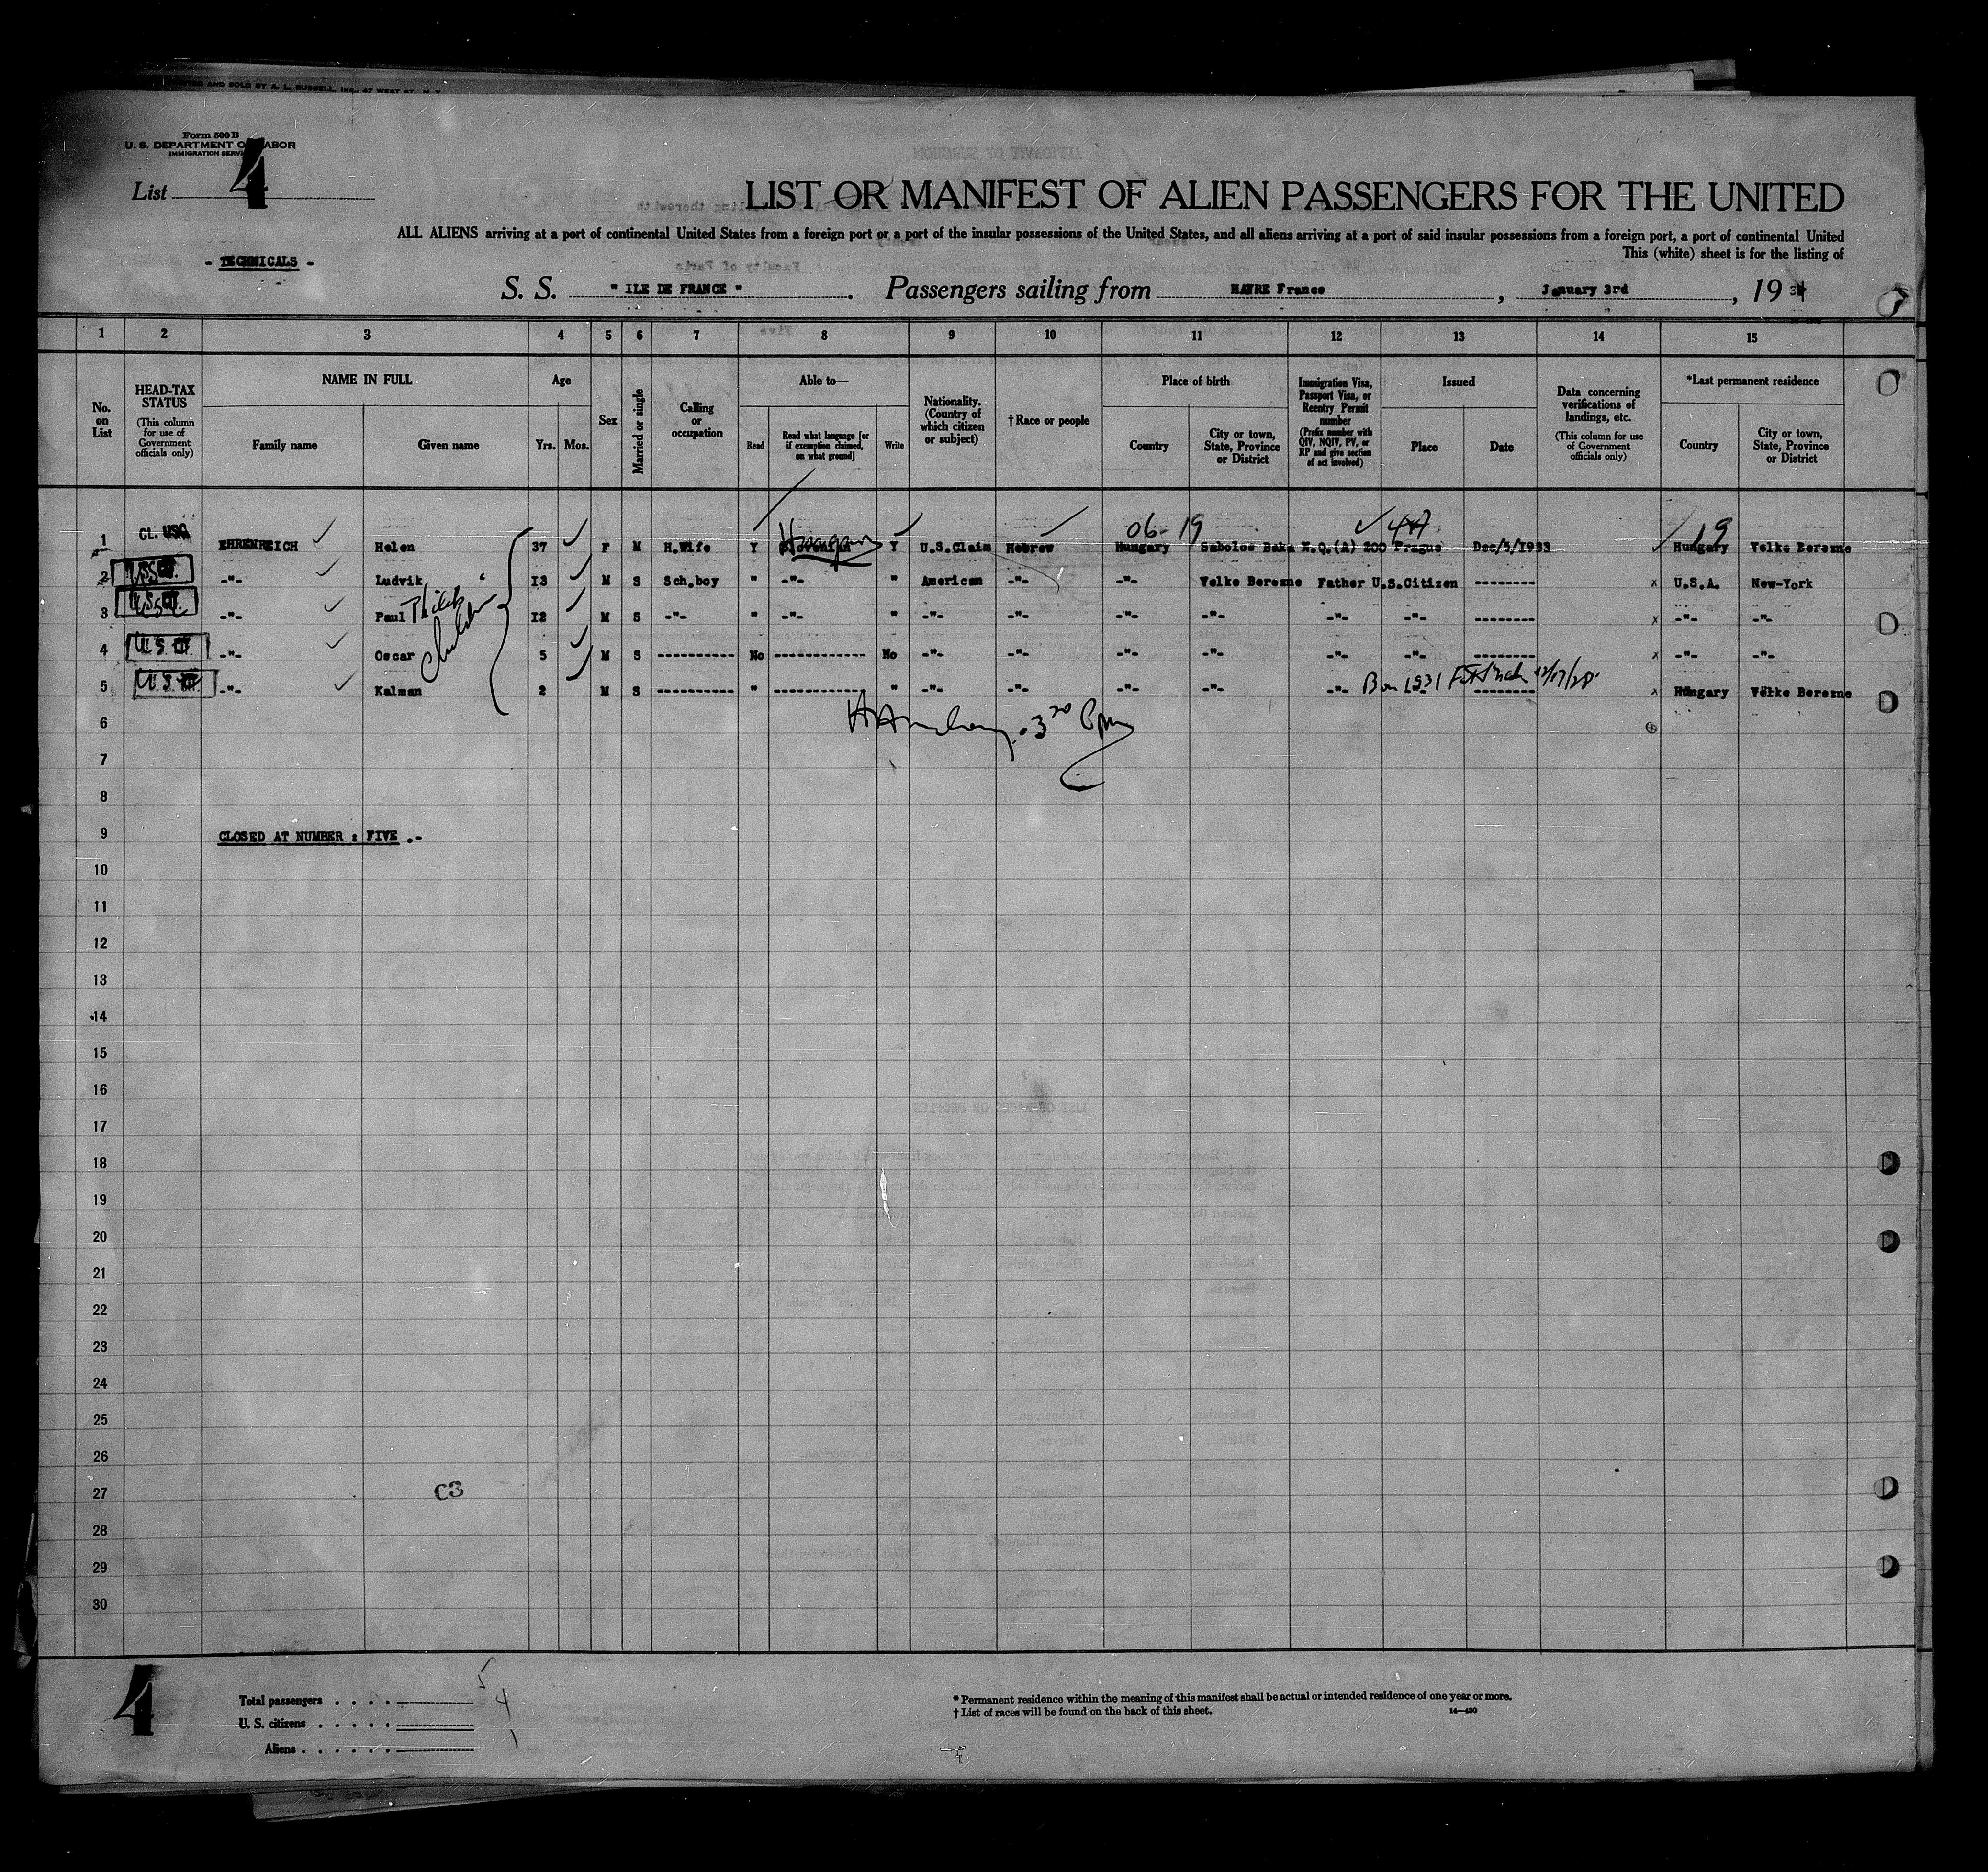 AND SOLD BY A. L. RUSSELL, INC., 47 WEST ST. N. Y.
Form 500 B
U. S. DEPARTMENT OF LABOR
IMMIGRATION SERVICE
List 4
LIST OR MANIFEST OF ALIEN PASSENGERS FOR THE UNITED
ALL ALIENS arriving at a port of continental United States from a foreign port or a port of the insular possessions of the United States, and all aliens arriving at a port of said insular possessions from a foreign port, a port of continental United
This (white) sheet is for the listing of
- TECHNICALS -
S. S. " ILE DE FRANCE ". Passengers sailing from HAVRE France, January 3rd, 1934
1 2 3 4 5 6 7 8 9 10 11 12 13 14 15
No. on List
HEAD-TAX STATUS
(This column for use of Government officials only)
NAME IN FULL
Family name Given name
Age
Yrs. Mos.
Sex
Married or single
Calling or occupation
Able to—
Read
Read what language [or if exemption claimed, on what ground]
Write
Nationality. (Country of which citizen or subject)
† Race or people
Place of birth
Country
City or town, State, Province or District
Immigration Visa, Passport Visa, or Reentry Permit number
(Prefix number with QIV, NQIV, PV, or RP and give section of act involved)
Issued
Place Date
Data concerning verifications of landings, etc.
(This column for use of Government officials only)
*Last permanent residence
Country
City or town, State, Province or District
06-19 19
1 CL. USC EHRENREICH Helen 37 F M H.Wife Y Y U.S.Claim Hebrew Hungary Saboloc Baka N.Q.(A) 200 Prague Dec/5/1933 Hungary Velke Berezne
2 -"- Ludvik 13 M S Sch.boy " -"- " American -"- -"- Velke Berezne Father U.S.Citizen -------- x U.S.A. New-York
3 -"- Paul 12 M S -"- " -"- " -"- -"- -"- -"- -"- -"- -------- x -"- -"-
4 -"- Oscar children 5 M S ---------- No ------------ No -"- -"- -"- -"- -"- -"- -------- x -"- -"-
5 -"- Kalman 2 M S ---------- " ------------ " -"- -"- -"- -"- -"- Born 1931 -------- x Hungary Velke Berezne
6
7
8
9 CLOSED AT NUMBER : FIVE .-
10
11
12
13
14
15
16
17
18
19
20
21
22
23
24
25
26
27 C3
28
29
30
4
Total passengers . . . . 5
U. S. citizens . . . . . 4
Aliens . . . . . . 1
* Permanent residence within the meaning of this manifest shall be actual or intended residence of one year or more.
† List of races will be found on the back of this sheet.
14—430